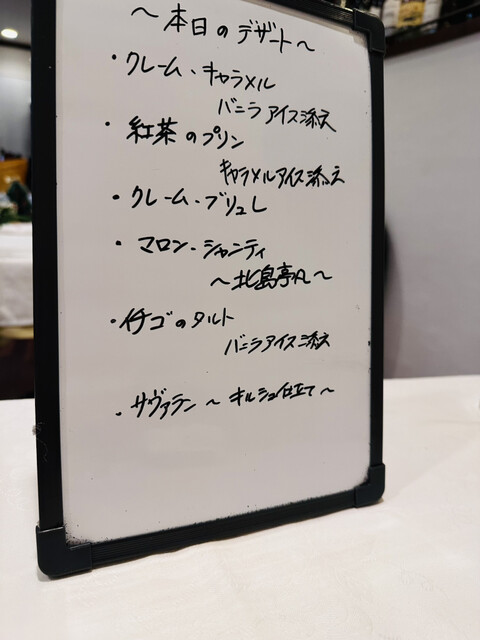 ～本日のデザート～
・クレーム・キャラメル
バニラアイス添え
・紅茶のプリン
キャラメルアイス添え
・クレーム・ブリュレ
・マロン・シャンティ
～北島亭風～
・イチゴのタルト
バニラアイス添え
・サヴァラン ～キルシュ仕立て～